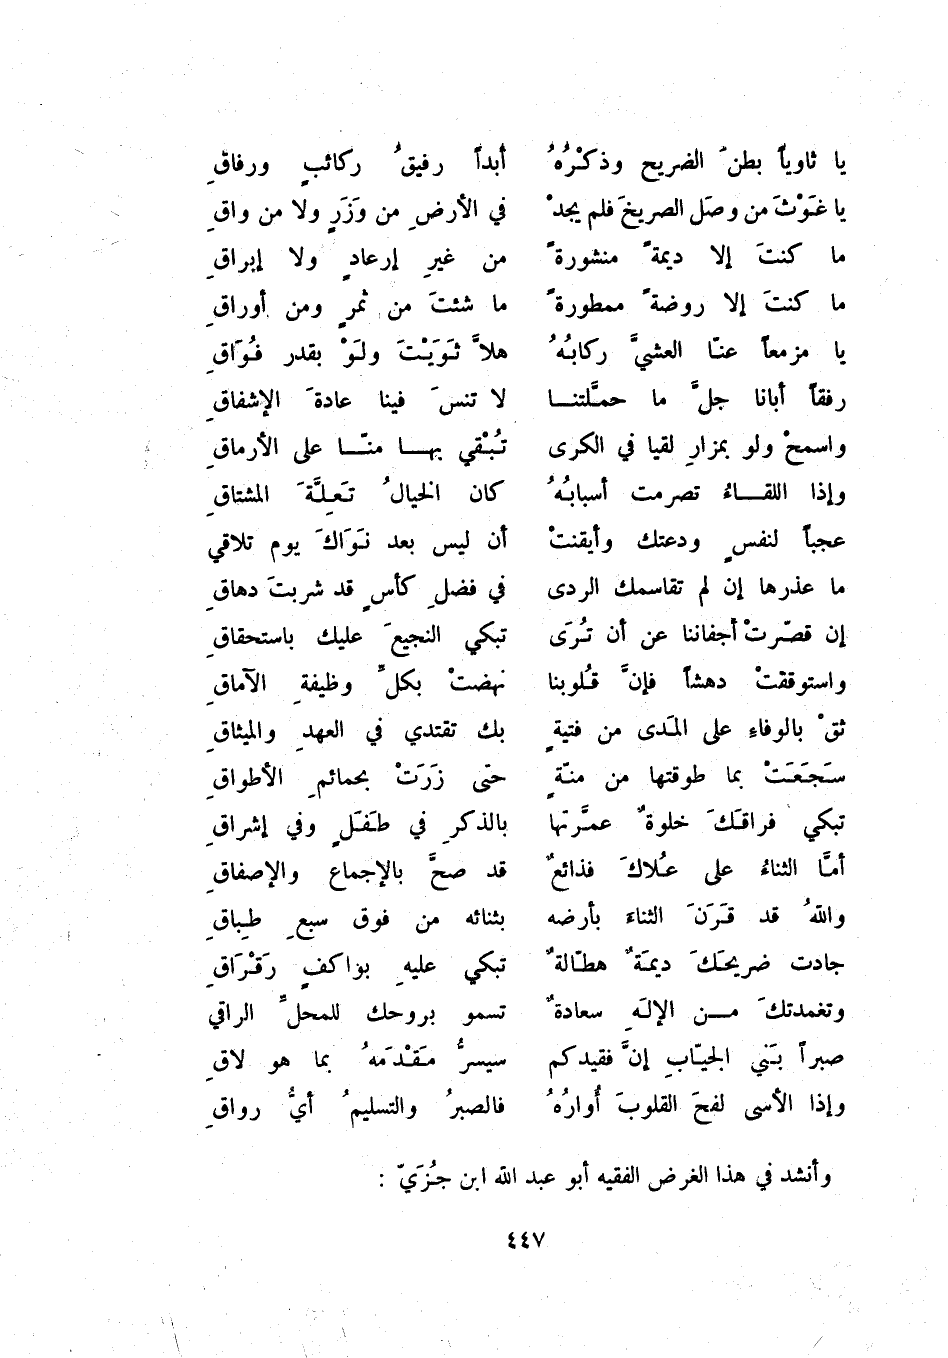 يا ثاوياً بطنَ الضريح وذكْرُهُ أبداً رفيقُ ركائبٍ ورفاقِ
يا غَوْثَ من وصَل الصريخَ فلم يجدْ في الأرضِ من وَزَرٍ ولا من واقِ
ما كنتَ إلا ديمةً منشورةً من غيرِ إرعادٍ ولا إبراقِ
ما كنتَ إلا روضةً ممطورةً ما شئتَ من ثمرٍ ومن أوراقِ
يا مزمعاً عنّا العشيَّ ركابُهُ هلاَّ ثَوَيْتَ ولَوْ بقدر فُوَاقِ
رفقاً أبانا جلَّ ما حمَّلتنا لا تنسَ فينا عادةَ الإشفاقِ
واسمحْ ولو بمزارِ لقيا في الكرى تُبْقي بها منّا على الأرماقِ
وإذا اللقاءُ تصرمت أسبابُهُ كان الخيالُ تَعِلَّةَ المشتاقِ
عجباً لنفسٍ ودعتك وأيقنتْ أن ليس بعد نَوَاكَ يوم تلاقي
ما عذرها إن لم تقاسمك الردى في فضلِ كأسٍ قد شربتَ دهاقِ
إن قصّرتْ أجفاننا عن أن تُرَى تبكي النجيعَ عليك باستحقاقِ
واستوقفتْ دهشاً فإنَّ قُلوبنا نهضتْ بكلِّ وظيفةِ الآماقِ
ثقْ بالوفاءِ على المَدى من فتيةٍ بك تقتدي في العهدِ والميثاقِ
سَجَعَتْ بما طوقتها من منّةٍ حتى زَرَتْ بحمائمِ الأطواقِ
تبكي فراقَكَ خلوةٌ عمَّرتها بالذكرِ في طَفَلٍ وفي إشراقِ
أمَّا الثناءُ على عُلاكَ فذائعٌ قد صحَّ بالإجماع والإصفاقِ
واللهُ قد قَرَنَ الثناءَ بأرضه بثنائه من فوق سبعِ طِباقِ
جادت ضريحَكَ ديمَةٌ هطّالةٌ تبكي عليهِ بواكفٍ رَقْرَاقِ
وتغمدتكَ من الإلَهِ سعادةٌ تسمو بروحك للمحلِّ الراقي
صبراً بَني الجيّابِ إنَّ فقيدكم سيسرُّ مَقْدَمَهُ بما هو لاقِ
وإذا الأسى لفحَ القلوبَ أُوارُهُ فالصبرُ والتسليمُ أيُّ رواقِ
وأنشد في هذا الغرض الفقيه أبو عبد الله ابن جُزَيّ :
٤٤٧